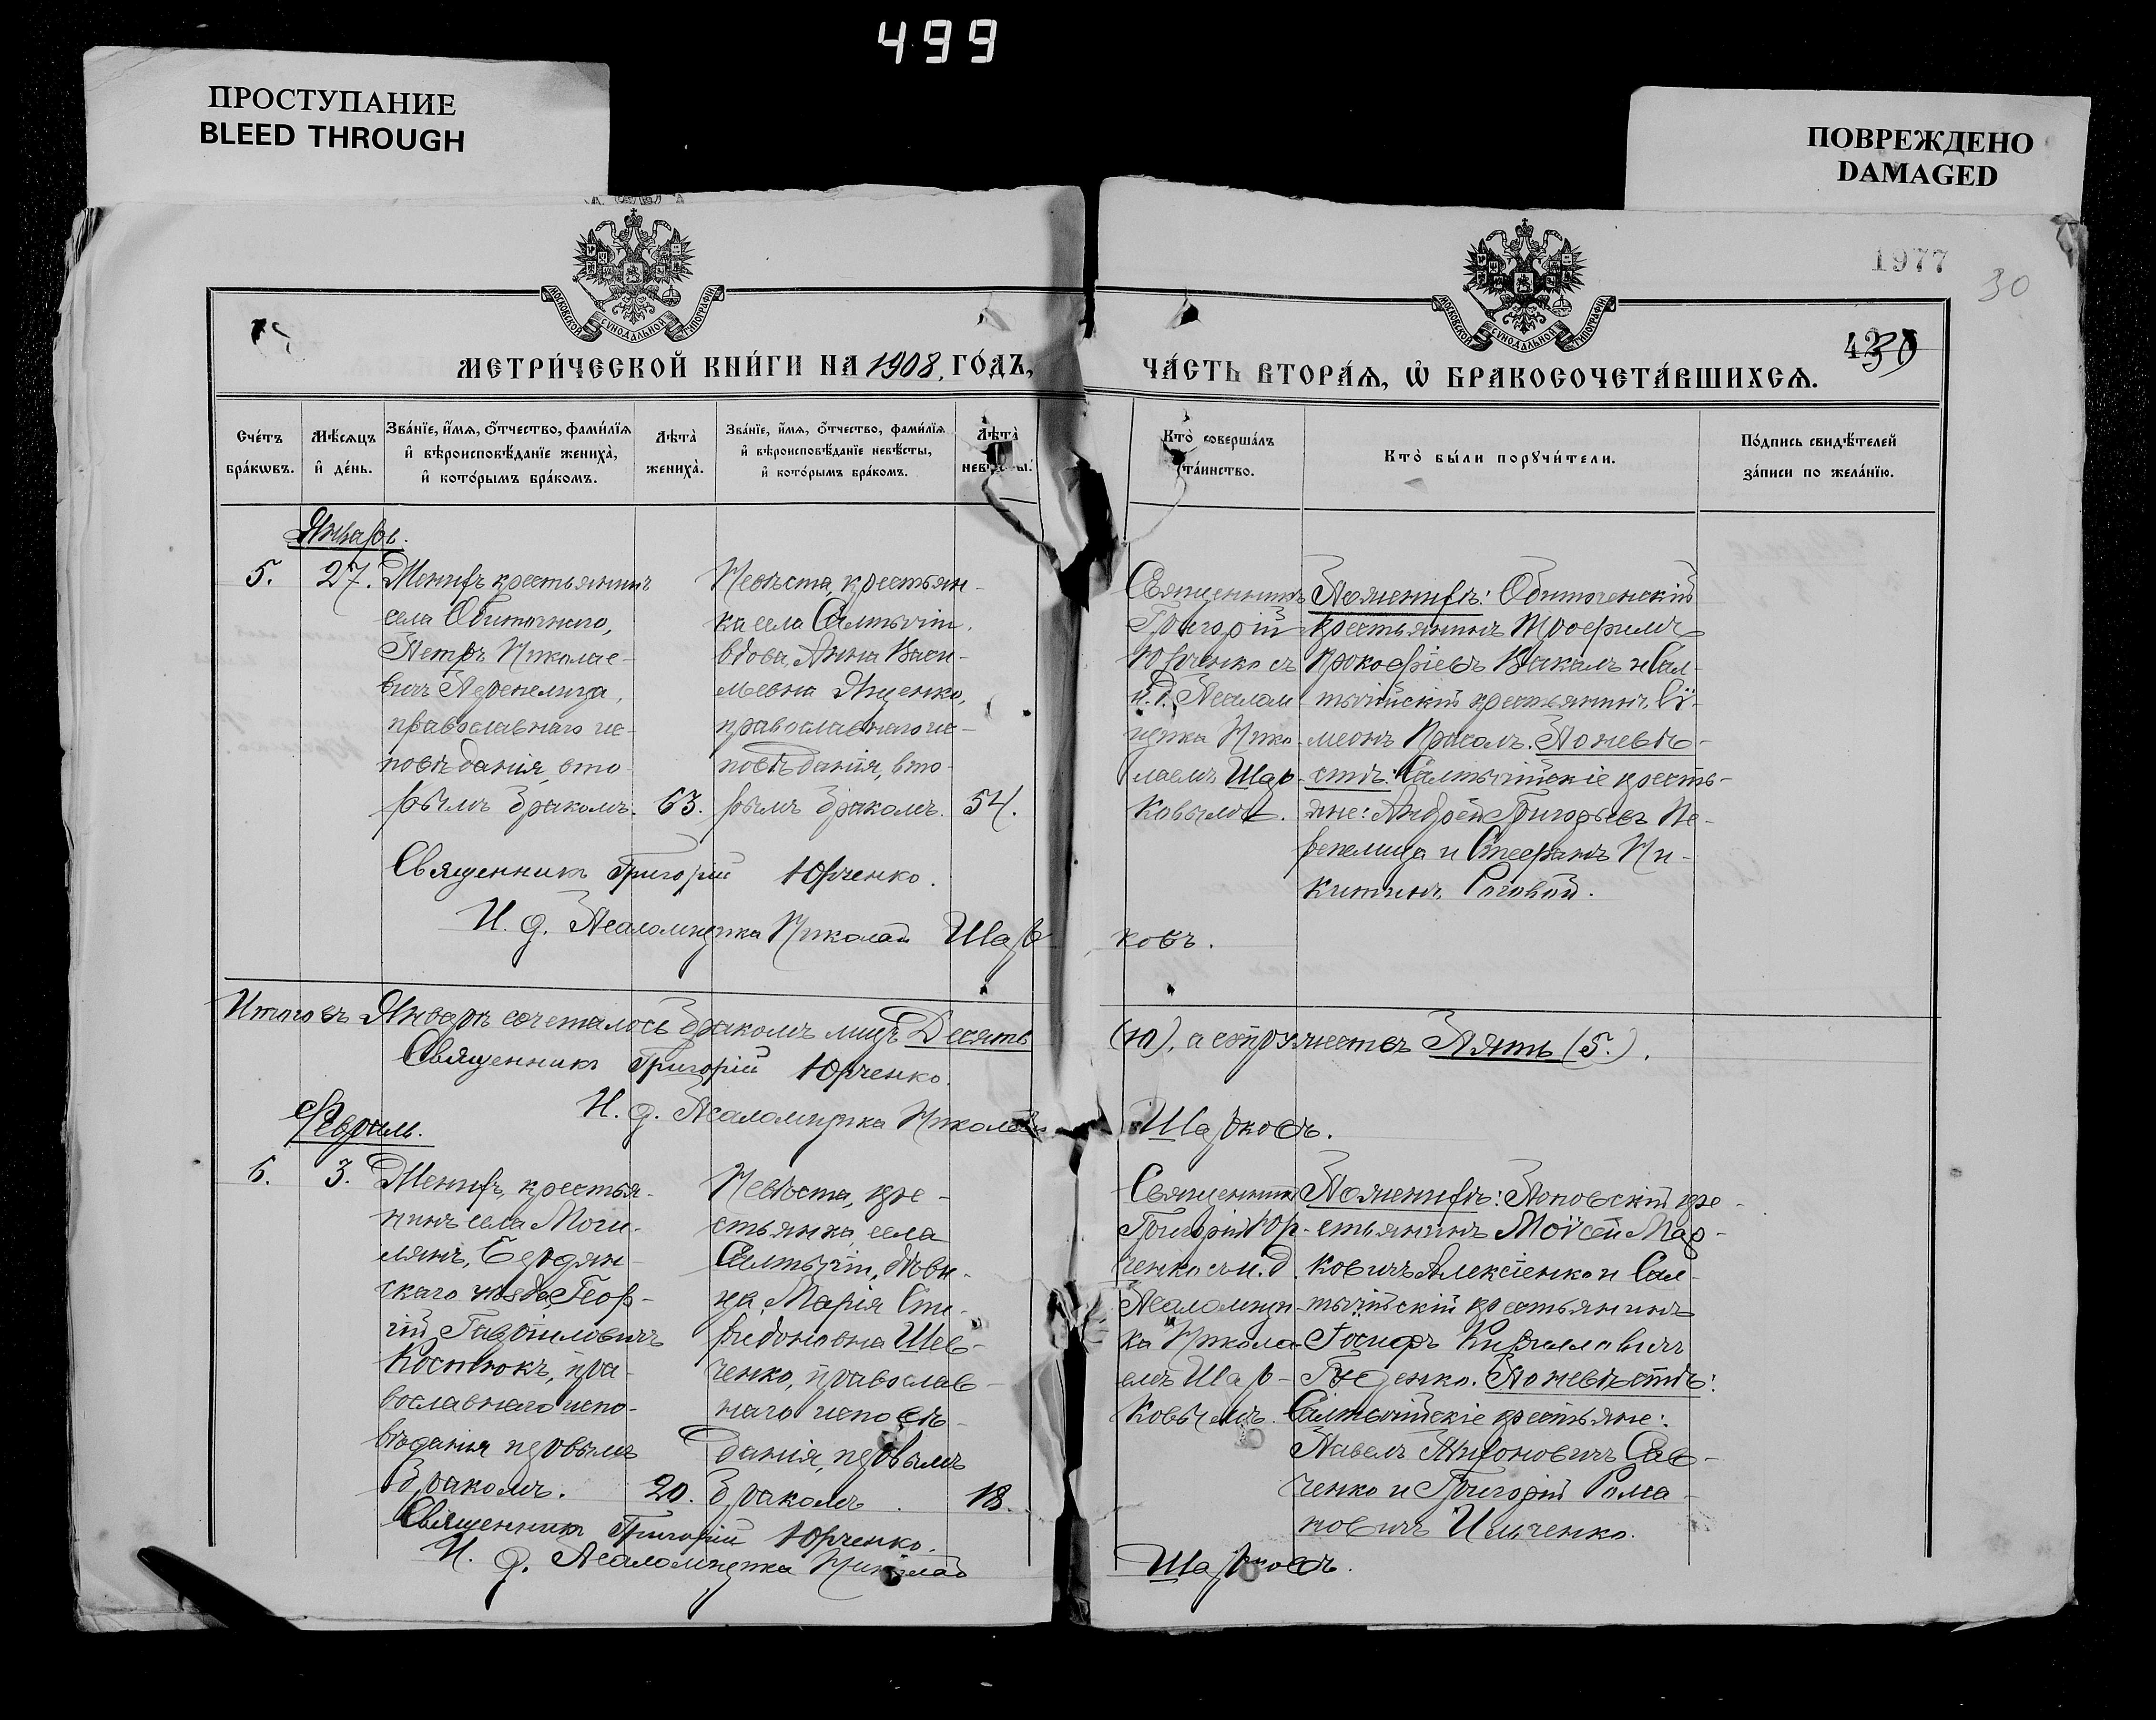 499
ПРОСТУПАНИЕ
BLEED THROUGH
ПОВРЕЖДЕНО
DAMAGED
1977
30
МОСКОВСКОЙ СѴНОДАЛЬНОЙ ТИПОГРАФІИ
МОСКОВСКОЙ СѴНОДАЛЬНОЙ ТИПОГРАФІИ
МЕТРИ́ЧЕСКОЙ КНИ́ГИ НА 1908 ГО́ДЪ,
ЧА́СТЬ ВТОРА́Ѧ, Ѡ҆ БРАКОСОЧЕТА́ВШИХСѦ.
Сче́тъ
бра́кѡвъ.
Мѣ́сѧцъ
и҆ де́нь.
Зва́нїе, и҆́мѧ, ѻ҆́тчество, фами́лїѧ
и҆ вѣроисповѣ́данїе женихà,
и҆ кото́рымъ бра́комъ.
Лѣтà
женихà.
Зва́нїе, и҆́мѧ, ѻ҆́тчество, фами́лїѧ
и҆ вѣроисповѣ́данїе невѣ́сты,
и҆ кото́рымъ бра́комъ.
Лѣтà
невѣ́сты.
Кто̀ соверша́лъ
та́инство.
Кто̀ бы́ли порꙋчи́тели.
По́дпись свидѣ́телей
за́писи по жела́нїю.
Январь.
5.
27.
Женихъ крестьянинъ
села Обиточнаго,
Петръ Николае-
вичъ Перепелица,
православнаго ис-
повѣданія, вто-
рымъ бракомъ.
63.
Невѣста, крестьян-
ка села Салтычіи,
вдова, Анна Васи-
льевна Яценко,
православнаго ис-
повѣданія, вто-
рымъ бракомъ.
54.
Священникъ
Григорій
Юрченко съ
и. д. Псалом
щика Нико-
лаемъ Шар-
ковымъ.
По женихѣ: Обиточенскій
крестьянинъ Трофимъ
Прокофіевъ Вакалъ и Сал-
тычійскій крестьянинъ Сѵ-
меонъ Прасолъ. По невѣ-
стѣ: Салтычійскіе кресть-
яне: Андрей Григорьевъ Пе-
репелица и Стефанъ Ни-
китинъ Роговой.
Священникъ Григорій Юрченко.
И. д. Псаломщика Николай Шарковъ.
Итого въ Январѣ сочеталось бракомъ лицъ Десять (10), а супружествъ Пять (5.).
Священникъ Григорій Юрченко.
И. д. Псаломщика Николай Шарковъ.
Февраль.
6.
3.
Женихъ, крестья-
нинъ села Моги-
лянъ, Бердян-
скаго уѣзда, Геор-
гій Гавріиловичъ
Костюкъ, пра-
вославнаго испо-
вѣданія первымъ
бракомъ.
20.
Невѣста, кре-
стьянка, села
Салтычіи, дѣви-
ца, Марія Спи-
ридоновна Шев-
ченко, православ-
наго исповѣ-
данія, первымъ
бракомъ.
18.
Священникъ
Григорій Юр-
ченко съ и. д.
Псаломщи-
ка Никола-
емъ Шар-
ковымъ.
По женихѣ: Поповскій кре-
стьянинъ Моѵсей Мар-
ковичъ Алексіенко и Сал-
тычійскій крестьянинъ
Іосифъ Кирилловичъ
По невѣстѣ:
Салтычійскіе крестьяне:
Павелъ Тихоновичъ Сав-
ченко и Григорій Рома-
новичъ Ильченко.
Священникъ Григорій Юрченко.
И. д. Псаломщика Николай Шарковъ.